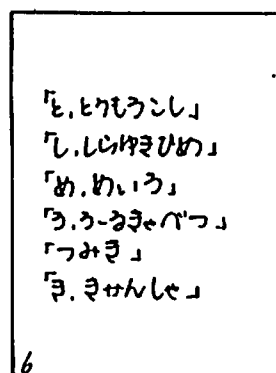 「と,とうもろこし」
「し,しらゆきひめ」
「め,めいろ」
「ろ,ろーるきゃべつ」
「つみき」
「き,きかんしゃ」
6